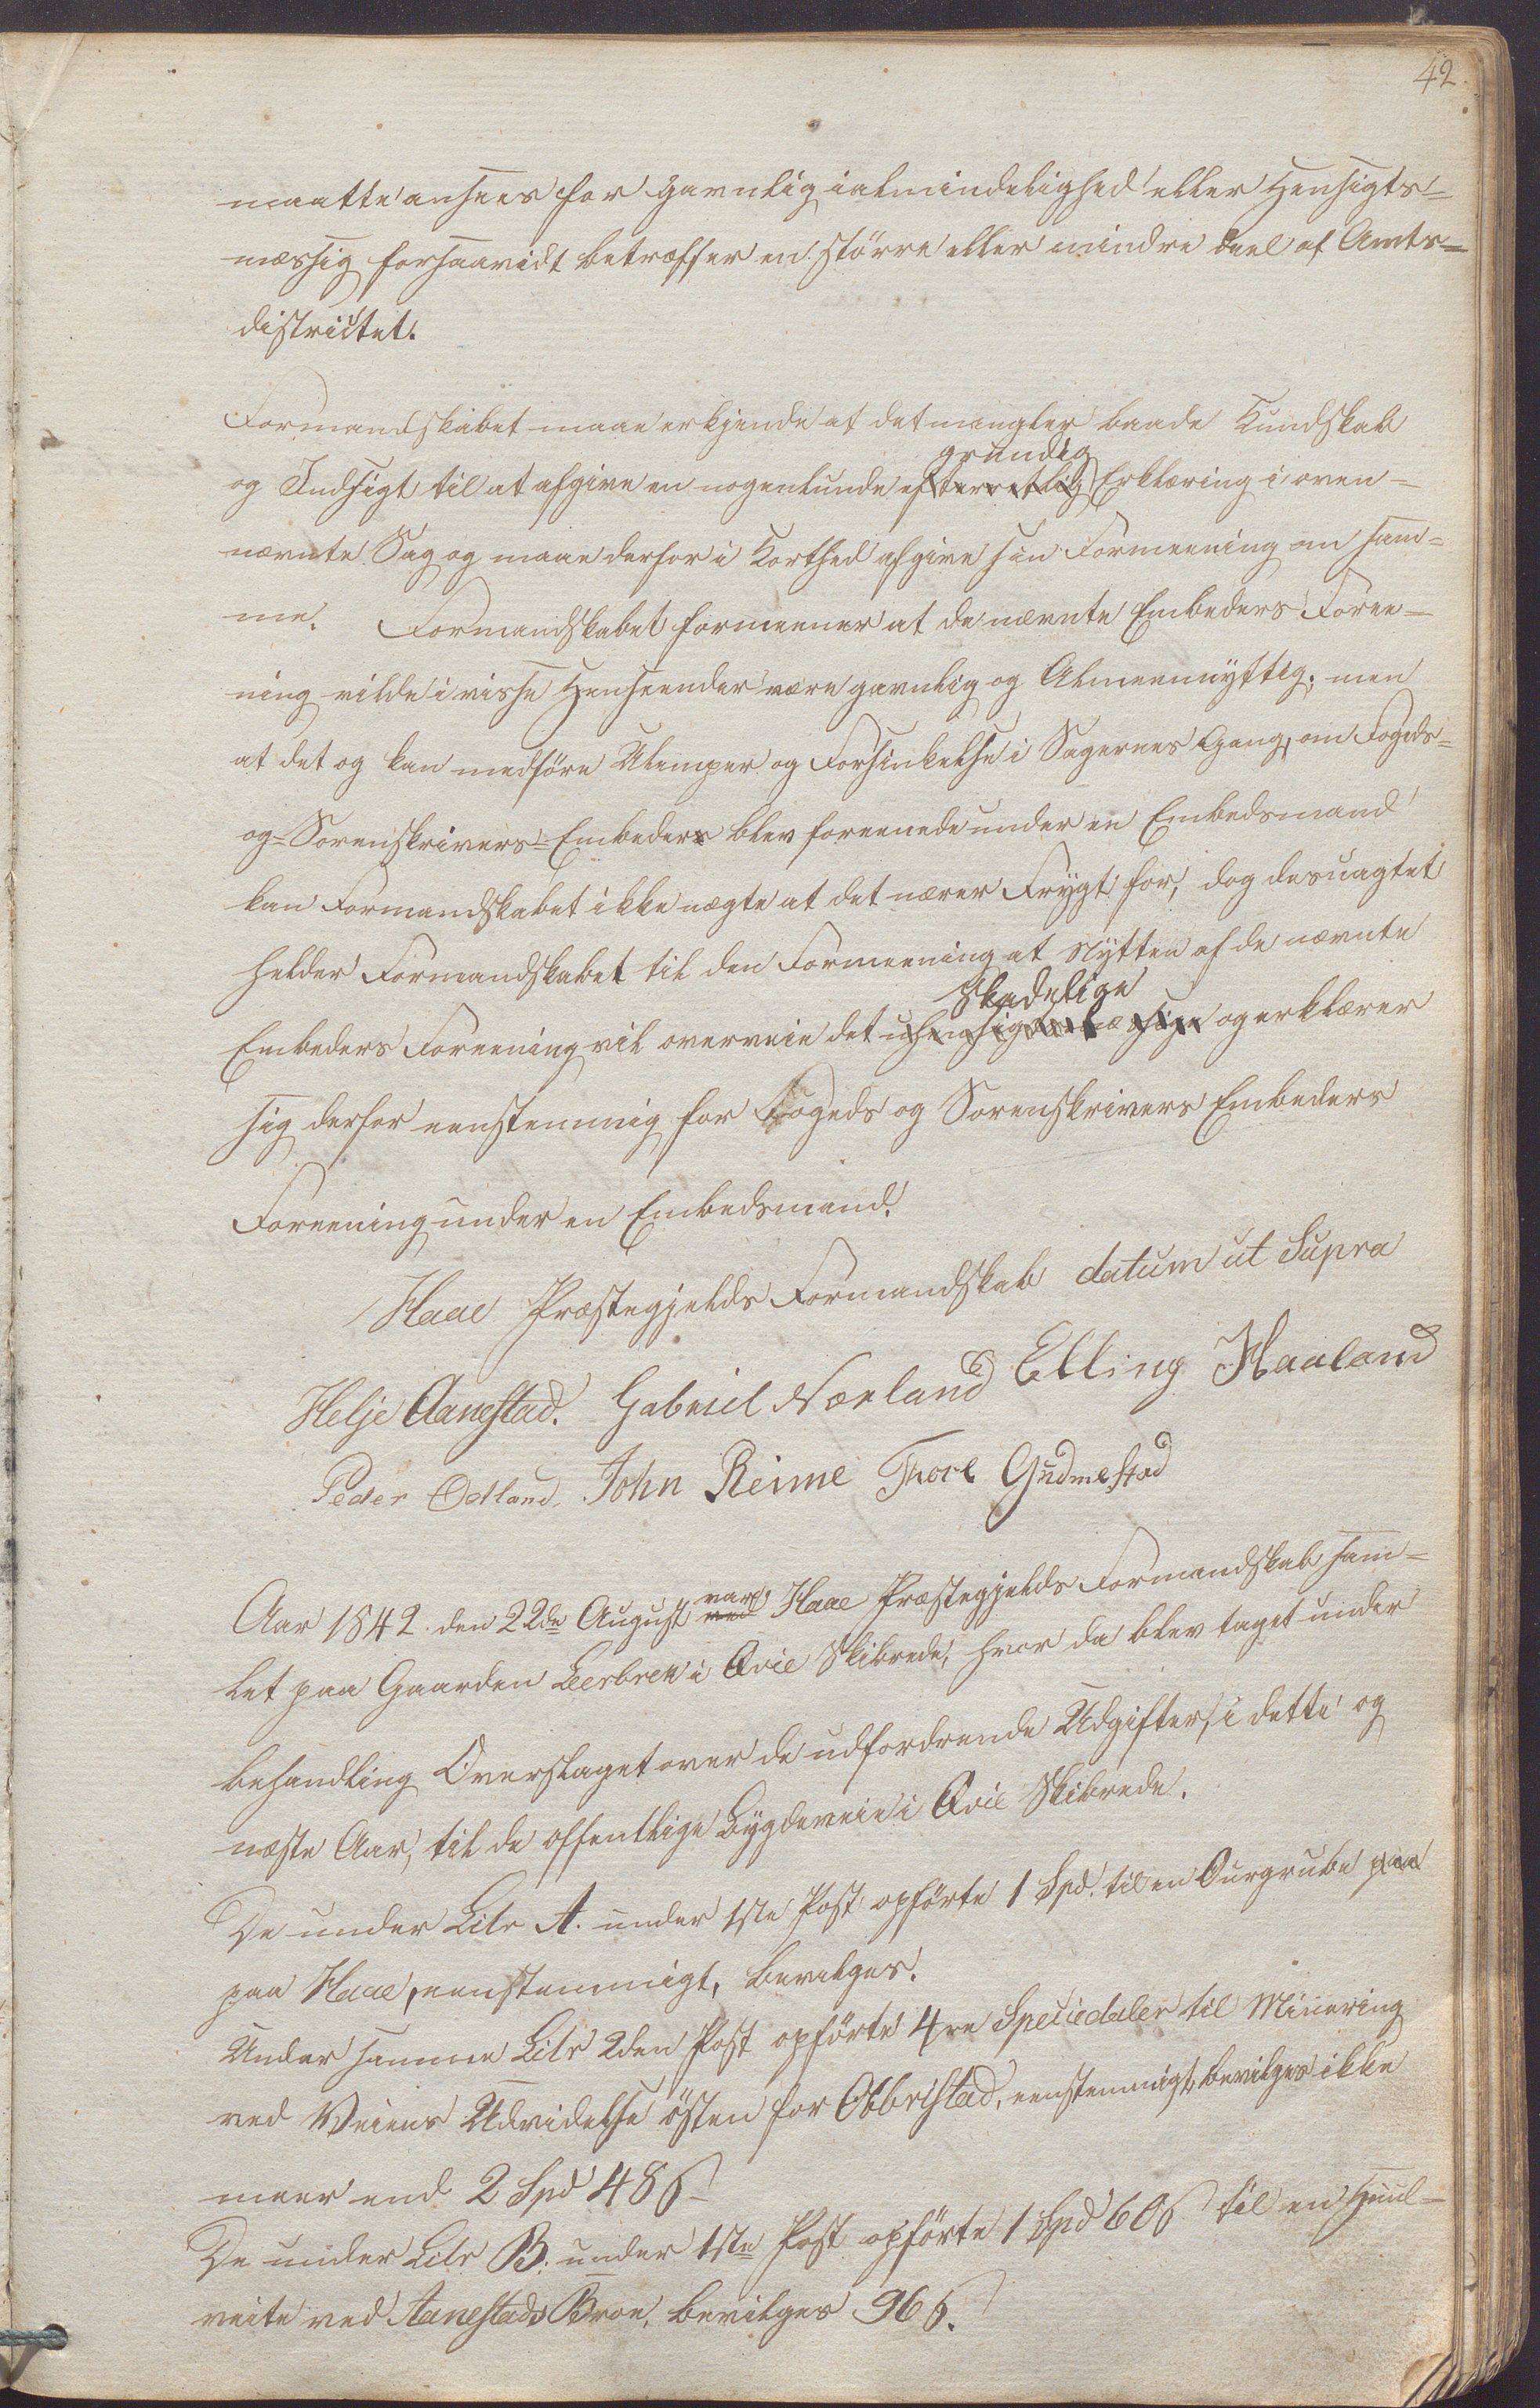 42.
maatte ansees for gavnlig i almindelighed eller Hensigts=
mæssig forsaavidt betræffer en större eller mindre Deel af Amts=
districtet.
Formandskabet maae erkjende at det mangler baade Kundskab
grundig
og Indsigt til at afgive en nogenlunde efterretlig Erklæring i oven=
nævnte Sag og maae derfor i Korthed afgive sin Formeening om sam=
me. Formandskabet formeener at de nævnte Embeders Foree=
ning vilde i visse Henseender være gavnlig og Almeennyttig; men
at det og kan medföre Ulemper og Forsinkelse i Sagernes Gang, om Fogeds=
og Sorenskrivers=Embeders blev foreenede under en Embedsmand
kan Formandskabet ikke nægte at det nærer Frygt for, dog desuagtet
helder Formandskabet til den Formeening at Nytten af de nævnte
Skadelige
Embeders Foreening vil overveie det uhensigtsmæssige og erklærer
sig derfor eenstemmig for Fogeds og Sorenskrivers Embeders
Foreening under en Embedsmand.
Haae Præstegjelds Formandskab datum ut Supra
Helje Aanestad. Gabriel Nærland Elling Haaland
Peder Odland. John Reime Tore Gudmestad
Aar 1842. den 22de August ved var Haae Præstegjelds Formandskab sam=
let paa Gaarden Leerbrek i Qvie Skibrede, hvor da blev taget under
behandling Overslaget over de udfordrende Udgifter, i dette og
næste Aar, til de offentlige Bygdeveie i Qvie Skibrede.
De under Litr A. under 1ste Post opförte 1 Spd. til en Aurgrube paa
paa Haae, eenstemmigt, bevilges.
Under samme Litr 2den Post opförte 4re Speciedaler til Minering
ved Veiens Udvidelse östen for Obbristad, eenstemmigt, bevilges ikke
meer end 2 Spd 48 ß
De under Litr B. under 1ste Post opförte 1 Spd 60 ß til en Huul=
veite ved Aanestads Broe, bevilges 96 ß.